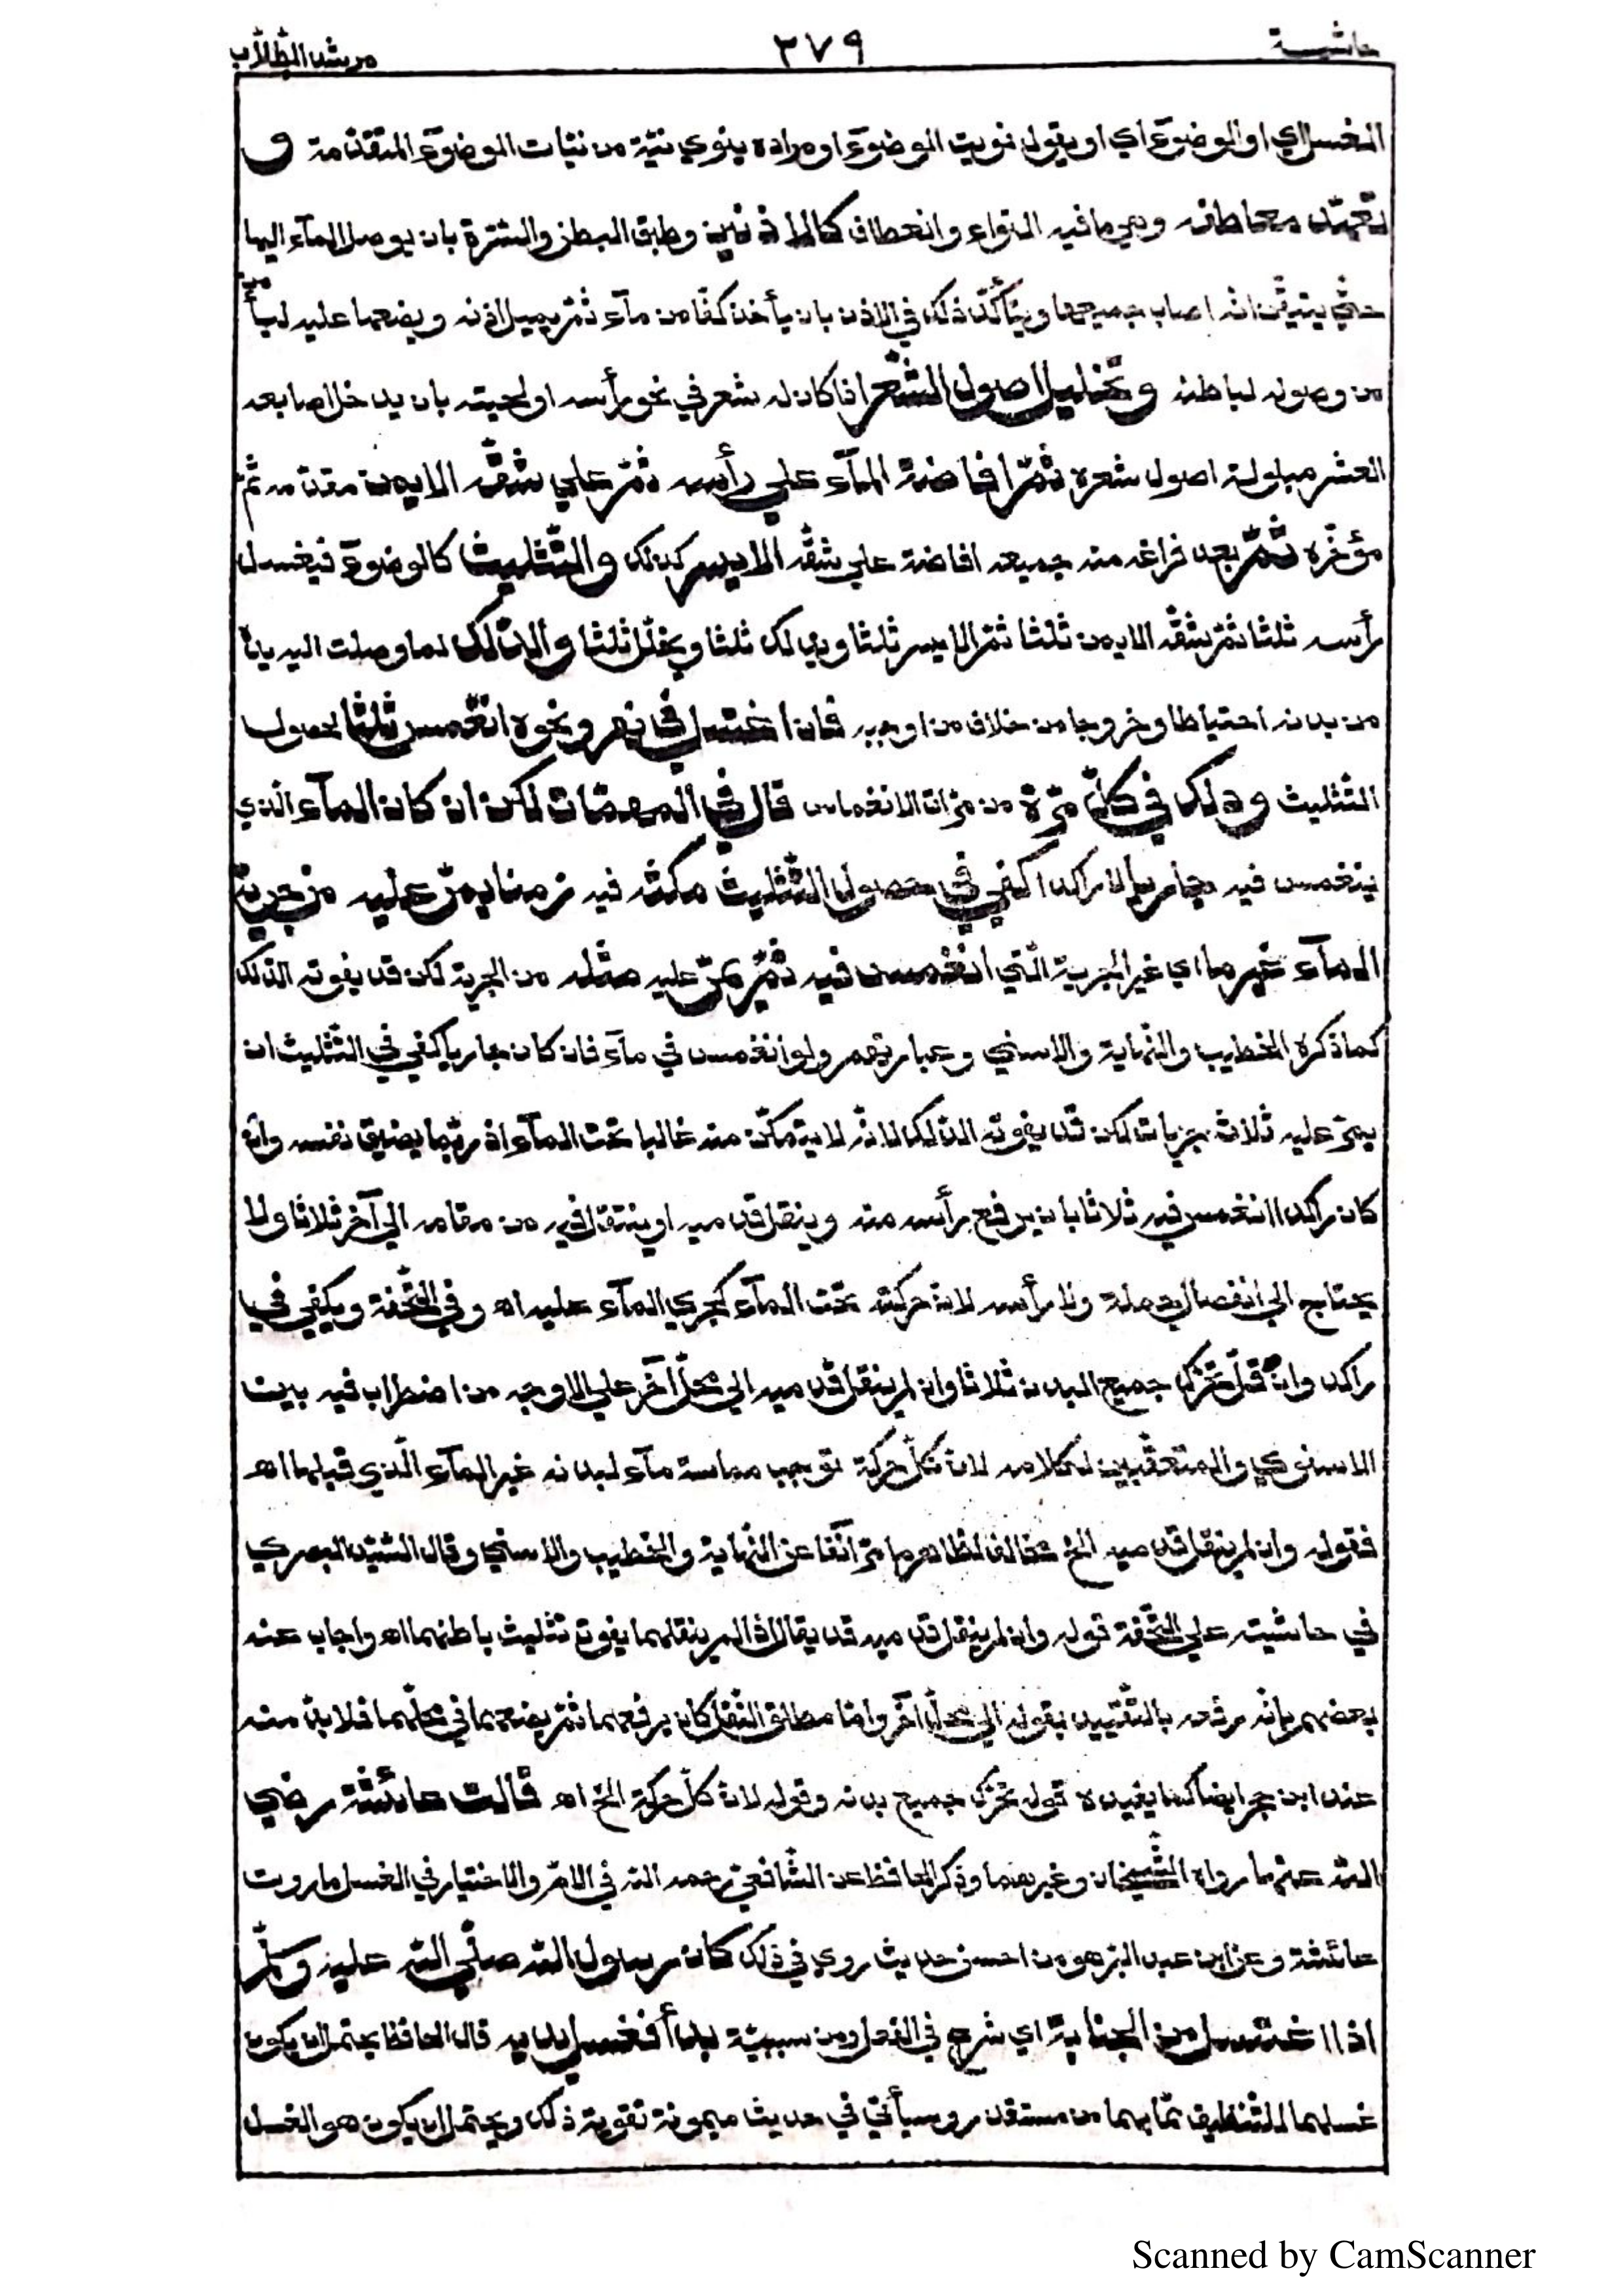 حاشية ٣٧٩ مرشد الطّلّاب
الغسل اي او الوضوء اي او يقول نويت الوضوء او مراده ينوي نيّة من نيّات الوضوء المتقدّمة و
تعهّد معاطفه وهي ما فيه التواء وانعطاف كالاذنين وطبق البطن والسّرّة بان يوصل المآء اليها
حتّي يتيقّن انّه اصاب جميعها ويتأكّد ذلك في الاذن بان يأخذ كفّا من مآء ثمّ يميل اذنه ويضعها عليه ليأمن
من وصوله لباطنه وتخليل اصول الشّعر اذا كان له شعر في نحو رأسه او لحيته بان يدخل اصابعه
العشر مبلولة اصول شعره ثمّ افاضة المآء علي رأسه ثمّ علي شقّه الايمن مقدّمه ثمّ
مؤخّره ثمّ بعد فراغه منه جميعه افاضة علي شقّه الايسر كذلك والتّثليث كالوضوء فيغسل
رأسه ثلثا ثمّ شقّه الايمن ثلثا ثمّ الايسر ثلثا ويدلك ثلثا ويخلّل ثلثا والدّلك لما وصلت اليه يده
من بدنه احتياطا وخروجا من خلاف من اوجبه فان اغتسل في نهر ونحوه انغمس ثلثا لحصول
التّثليث ودلك في كلّ مرّة من مرّات الانغماس قال في المهمّات لكن ان كان المآء الّذي
ينغمس فيه جاريا لا راكدا كفي في حصول التّثليث مكثه فيه زمنا يمرّ عليه من جرية
المآء غيرها اي غير الجرية الّتي انغمس فيه ثمّ يمرّ عليه مثله من الجرية لكن قد يفوته الدّلك
كما ذكره الخطيب والنّهاية والاسني وعبارتهم ولو انغمس في مآء فان كان جاريا كفي في التّثليث ان
يمرّ عليه ثلاث جريات لكن قد يفوته الدّلك لانّه لا يتمكّن منه غالبا تحت المآء اذ ربّما يضيق نفسه وان
كان راكدا انغمس فيه ثلاثا بان يرفع رأسه منه وينقل قدميه او ينتقل فيه من مقامه الي آخر ثلاثا ولا
يحتاج الي انفصال جملة ولا رأسه لان حركته تحت المآء كجري المآء عليه اه وفي التّحفة ويكفي في
راكد وان قلّ تحرّك جميع البدن ثلاثا وان لم ينقل قدميه الي محلّ آخر علي الاوجه من اضطراب فيه بين
الاسنوي والمتعقّبين لكلامه لان كلّ حركة توجب مماسة مآء لبدنه غير المآء الّذي قبلها اه
فقوله وان لم ينقل قدميه الخ مخالف لظاهر ما مرّ آنفا عن النّهاية والخطيب والاسني وقال السّيّد البصري
في حاشيته علي التّحفة قوله وان لم ينقل قدميه قد يقال اذا لم ينقلهما يفوت تثليث باطنهما اه واجاب عنه
بعضهم بانّه مرّ دفعه بالتّقييد بقوله الي محلّ آخر وامّا مطلق النّقل كان يرفعهما ثمّ يضعهما في محلّهما فلا بدّ منه
عند ابن حجر ايضا كما يفيده قوله تحرّك جميع بدنه وقوله لان كلّ حركة الخ اه قالت عائشة رضي
اللّه عنها ما رواه الشّيخان وغيرهما وذكر الحافظ عن الشّافعي رحمه اللّه في الامّ والاختيار في الغسل ما روت
عائشة وعن ابن عبد البرّ هو من احسن حديث روي في ذلك كان رسول اللّه صلّي اللّه عليه وسلّم
اذا اغتسل من الجنابة اي شرع في الفعل ومن سببيّة بدأ فغسل يديه قال الحافظ يحتمل ان يكون
غسلهما للتّنظيف ممّا بهما من مستقذر وسيأتي في حديث ميمونة تقوية ذلك ويحتمل ان يكون هو الغسل
Scanned by CamScanner